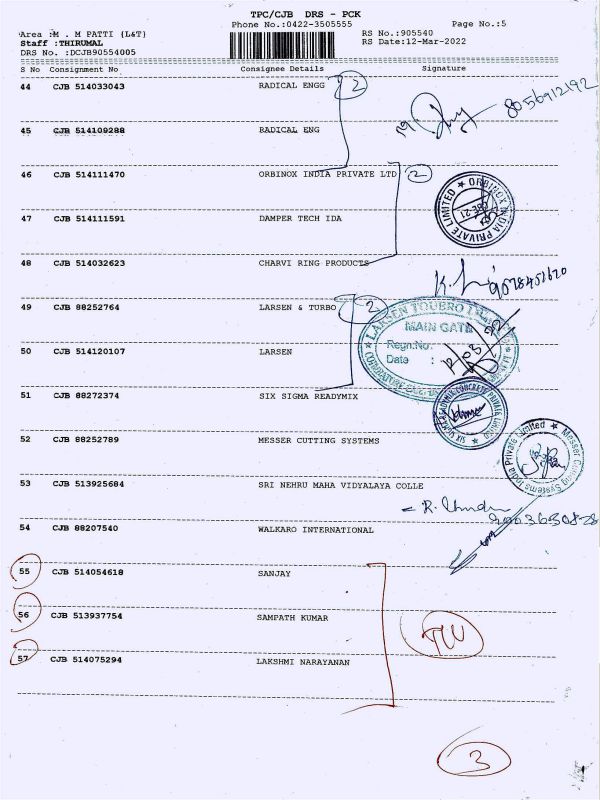 TPC/CJB DRS - PCK
Phone No.:0422-3505555 Page No.:5
Area :M . M PATTI (L&T) RS No.:905540
Staff :THIRUMAL RS Date:12-Mar-2022
DRS No. :DCJB90554005
S No Consignment No Consignee Details Signature
44 CJB 514033043 RADICAL ENGG 2
8056912192
45 CJB 514109288 RADICAL ENG
46 CJB 514111470 ORBINOX INDIA PRIVATE LTD 2
ORBINOX INDIA PRIVATE LIMITED
47 CJB 514111591 DAMPER TECH IDA
48 CJB 514032623 CHARVI RING PRODUCTS
49 CJB 88252764 LARSEN & TURBO 2
LARSEN TOUBRO
MAIN GATE
Regn.No.
Date :
50 CJB 514120107 LARSEN
51 CJB 88272374 SIX SIGMA READYMIX
52 CJB 88252789 MESSER CUTTING SYSTEMS
Messer Cutting Systems India Private Limited
53 CJB 513925684 SRI NEHRU MAHA VIDYALAYA COLLE
54 CJB 88207540 WALKARO INTERNATIONAL
55 CJB 514054618 SANJAY
56 CJB 513937754 SAMPATH KUMAR
57 CJB 514075294 LAKSHMI NARAYANAN
3